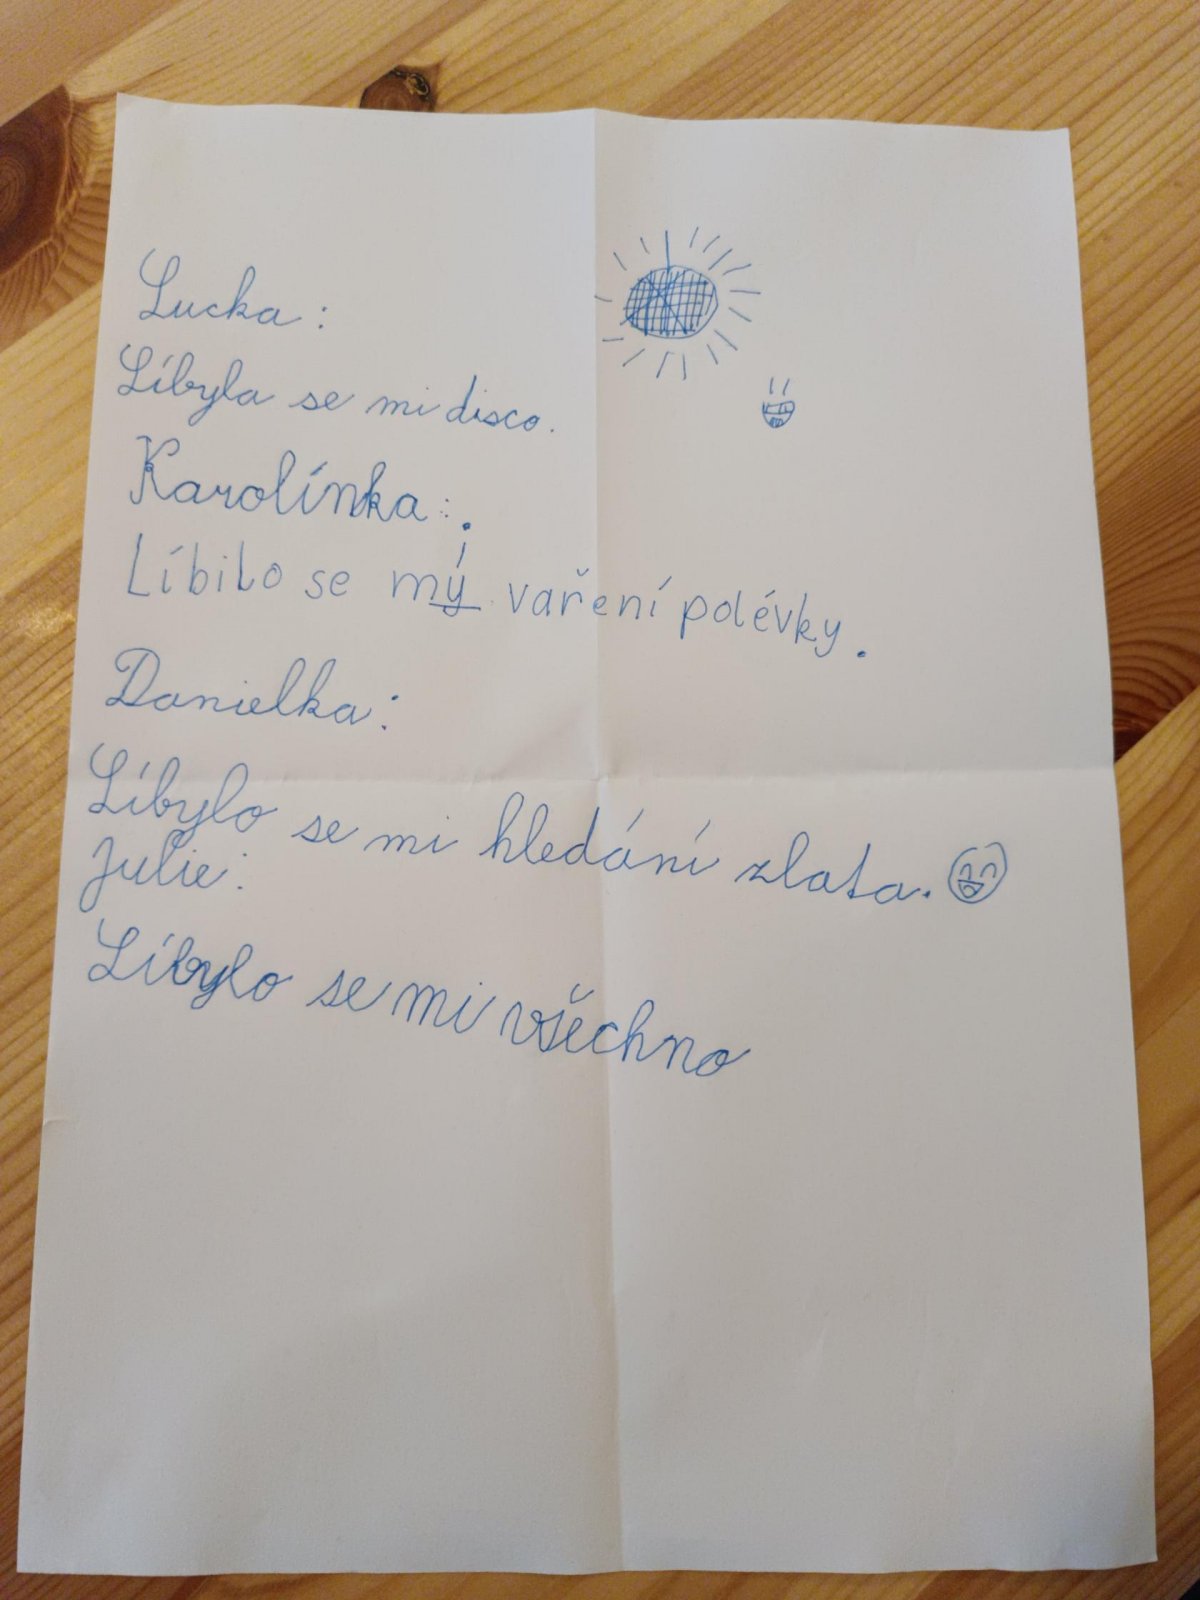 Lucka:
Líbyla se mi disco.
Karolínka:.
Líbilo se mý vaření polévky.
Danielka:
Líbylo se mi hledání zlata.
Julie:
Líbylo se mi všechno